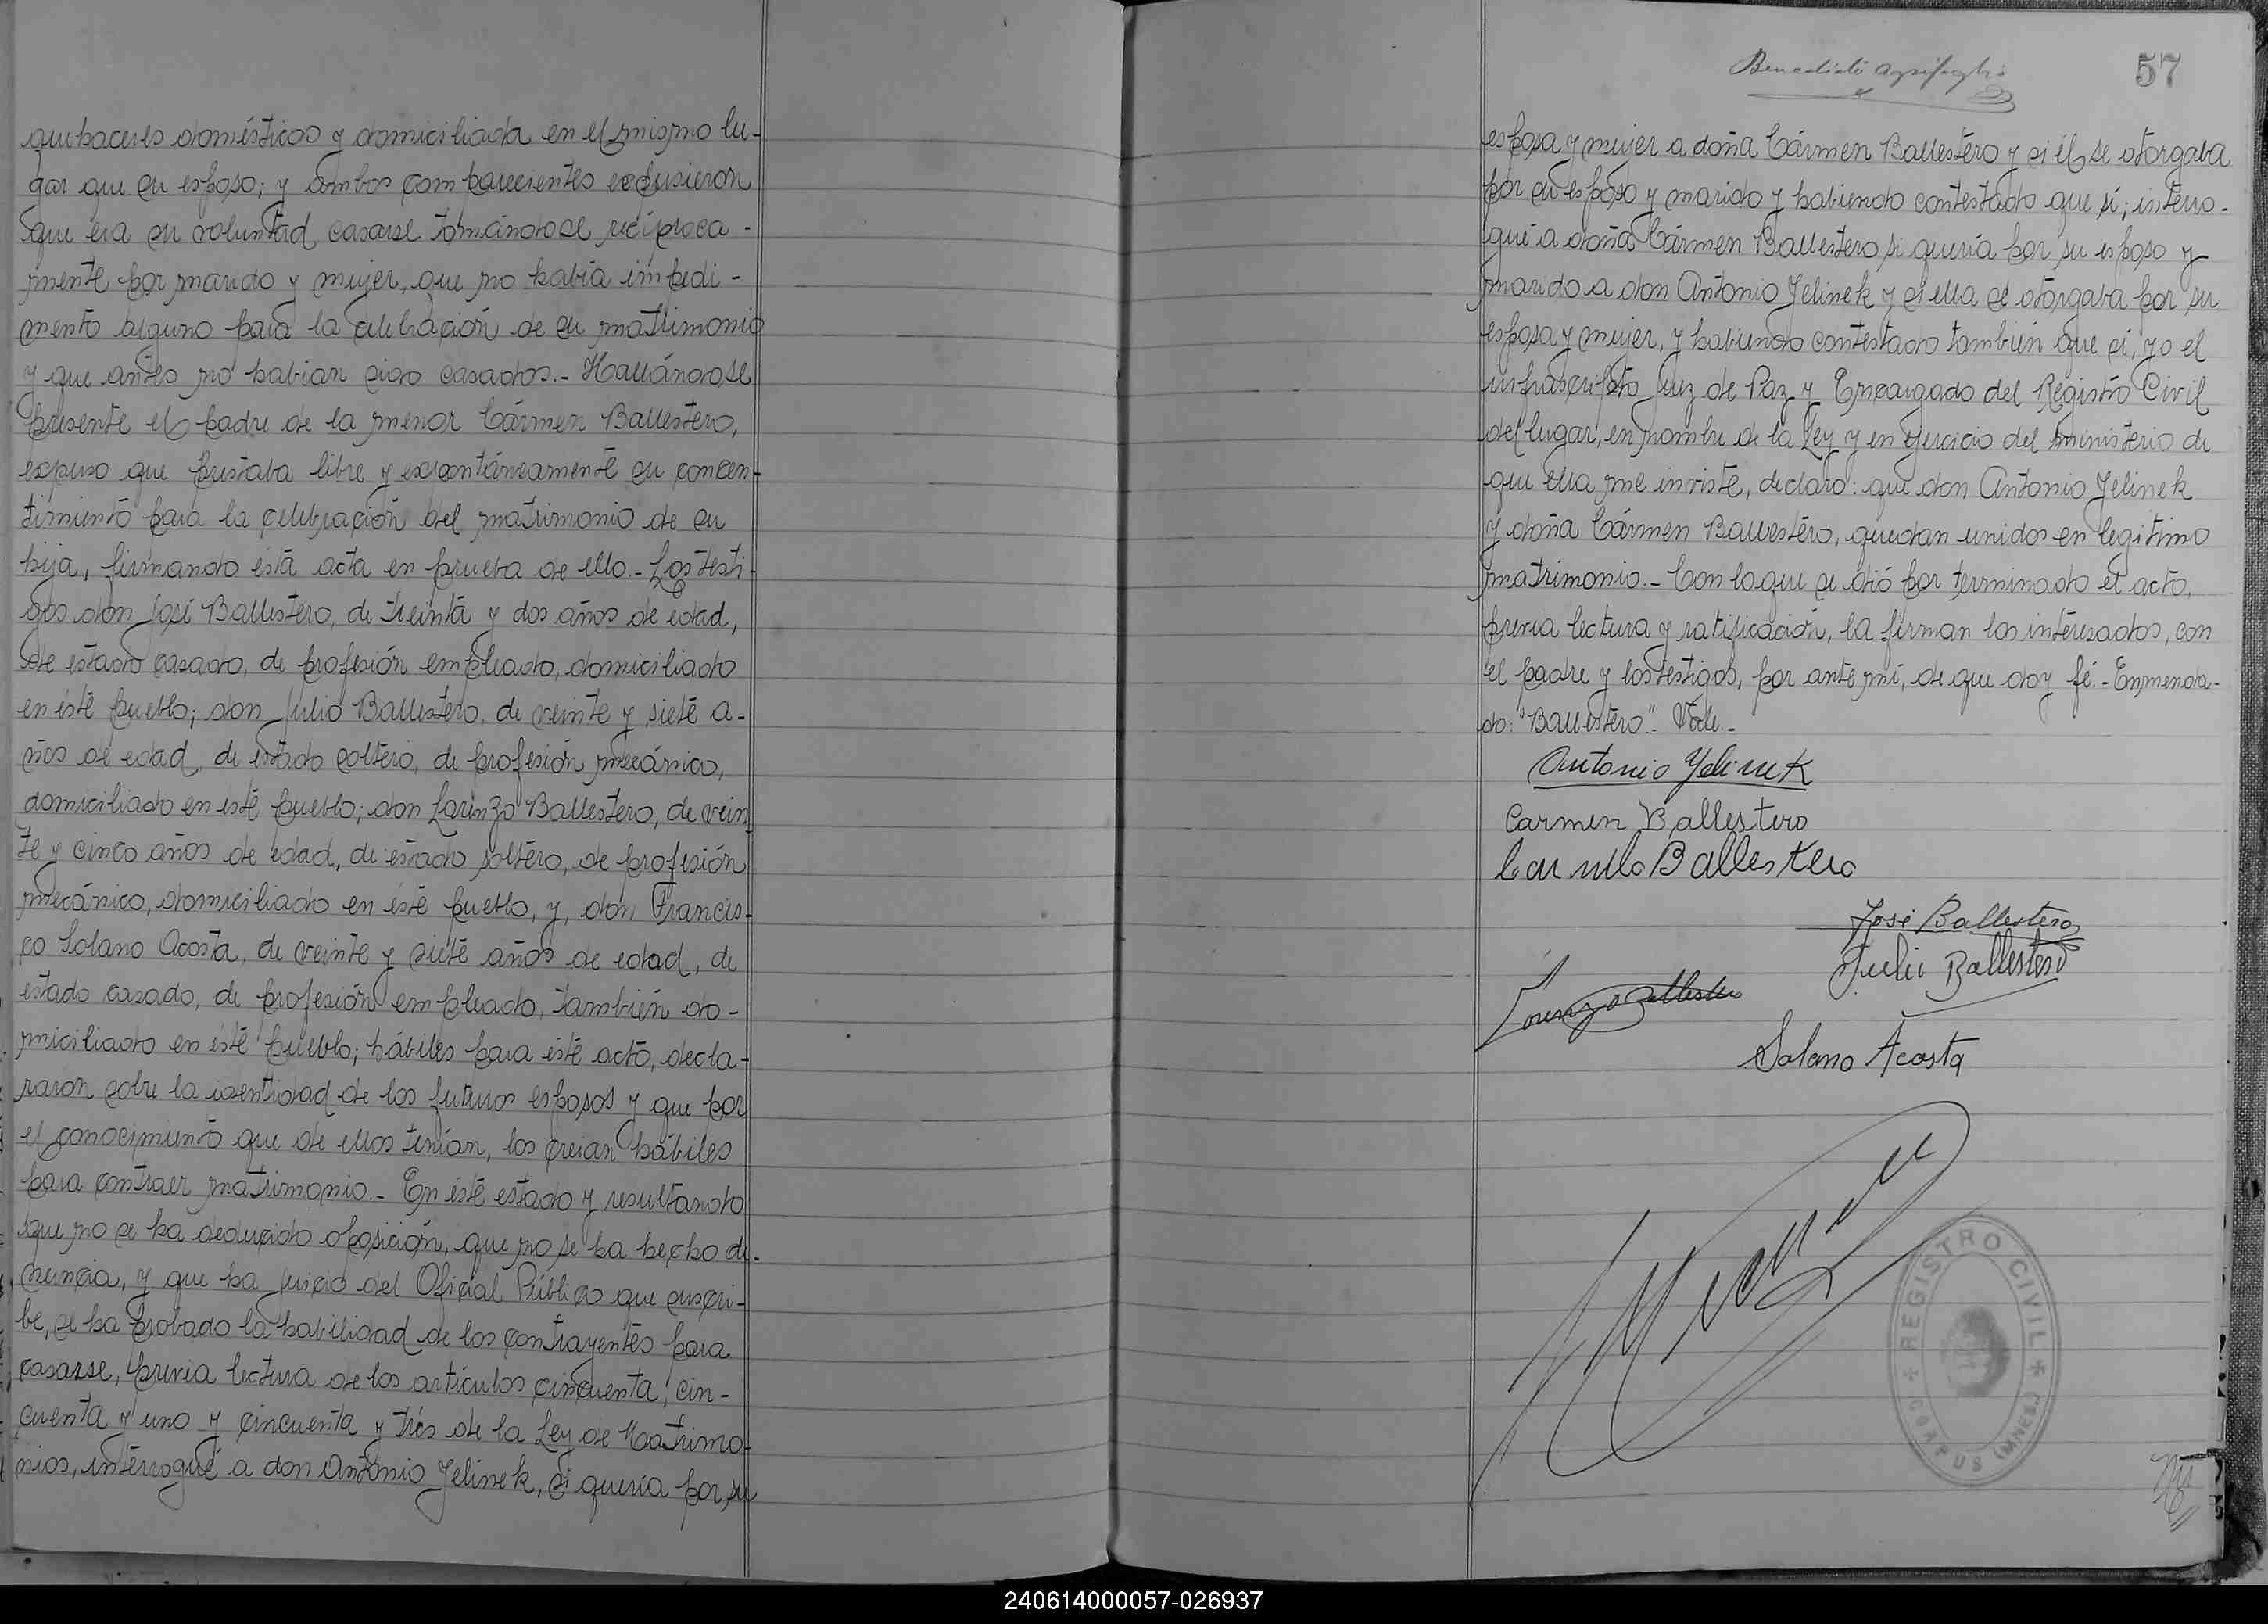 quehaceres domésticos y domiciliada en el mismo lu-
gar que su esposo; y ambos comparecientes expusieron
que era su voluntad casarse tomándose recíproca-
mente por marido y mujer, que no había impedi-
mento alguno para la celebración de su matrimonio
y que antes no habían sido casados.- Hallándose
presente el padre de la menor Cármen Ballestero,
expuso que prestaba libre y expontáneamente su consen-
timiento para la celebración del matrimonio de su
hija, firmando ésta acta en prueba de ello.- Los testi-
gos don José Ballestero, de treinta y dos años de edad,
de estado casado, de profesión empleado, domiciliado
en éste pueblo; don Julio Ballestero, de veinte y siete a-
ños de edad, de estado soltero, de profesión mecánico,
domiciliado en éste pueblo; don Lorenzo Ballestero, de vein-
te y cinco años de edad, de estado soltero, de profesión
mecánico, domiciliado en éste pueblo, y, don Francis-
co Solano Acosta, de veinte y siete años de edad, de
estado casado, de profesión empleado, también do-
miciliado en éste pueblo; hábiles para éste acto, decla-
raron sobre la identidad de los futuros esposos y que por
el conocimiento que de ellos tenían, los creian hábiles
para contraer matrimonio.- En éste estado y resultando
que no se ha deducido oposición, que no se ha hecho de-
nuncia, y que ha juicio del Oficial Público que suscri-
be, se ha probado la habilidad de los contrayentes para
casarse, previa lectura de los artículos cincuenta, cin-
cuenta y uno y cincuenta y trés de la Ley de Matrimo-
nios, interrogué a don Antonio Jelinek, si quería por su
57
esposa y mujer a doña Cármen Ballestero y si él se otorgaba
por su esposo y marido y habiendo contestado que sí; interro-
gué a doña Cármen Ballestero si quería por su esposo y
marido a don Antonio Jelinek y si ella se otorgaba por su
esposa y mujer, y habiendo contestado también que sí, yo el
infrascripto Juez de Paz y Encargado del Registro Civil
del lugar, en nombre de la Ley y en ejercicio del ministerio de
que ella me inviste, declaro: que don Antonio Jelinek
y doña Cármen Ballestero, quedan unidos en legítimo
matrimonio.- Con lo que se dió por terminado el acto,
previa lectura y ratificación, la firman los interesados, con
el padre y los testigos, por ante mí, de que doy fé.- Enmenda-
do: "Ballestero". Vale.-
Antonio Yelinek
Carmen Ballestero
Ballestero
José Ballestero
Julio Ballestero
Lorenzo Ballestero
Solano Acosta
REGISTRO CIVIL
CORPUS (MNES.)
240614000057-026937